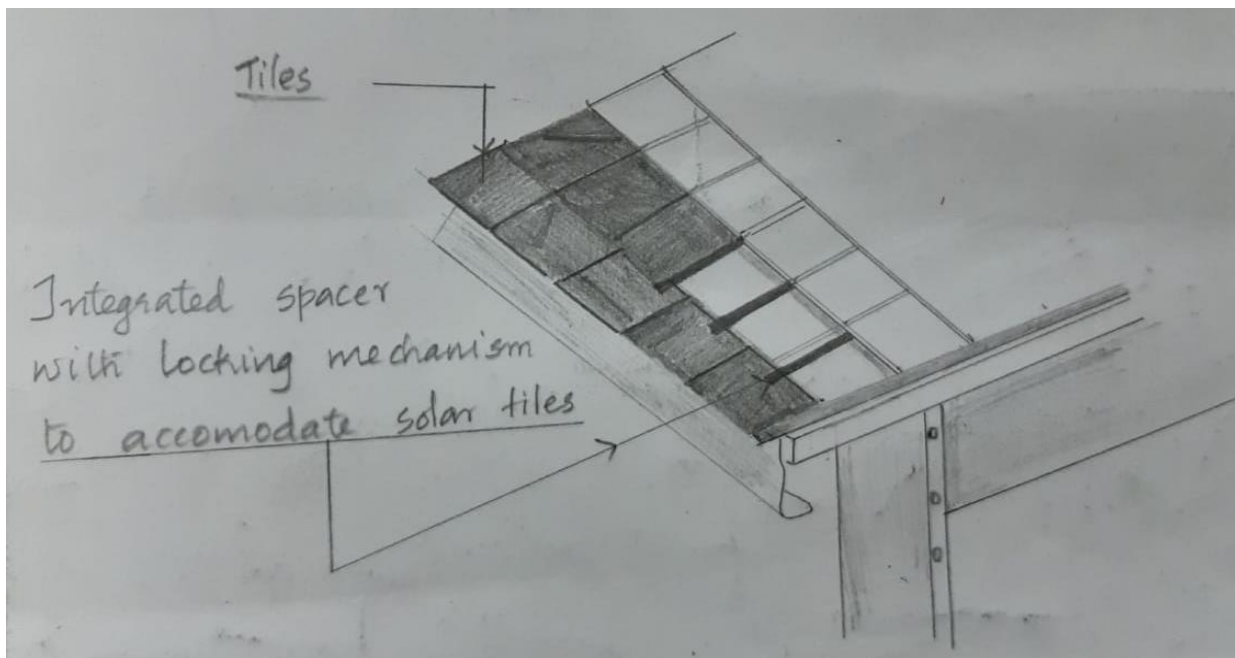 Tiles
Integrated spacer
with locking mechanism
to accomodate solar tiles